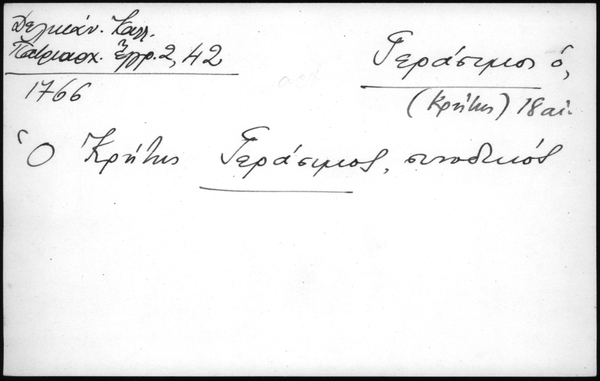 Δελικάν. Καλλ.
Πατριαρχ. Ἔγγρ. 2, 42
1766
Γεράσιμος ὁ,
(Κρήτης) 18 αἰ.
Ὁ Κρήτης Γεράσιμος, συνοδικός